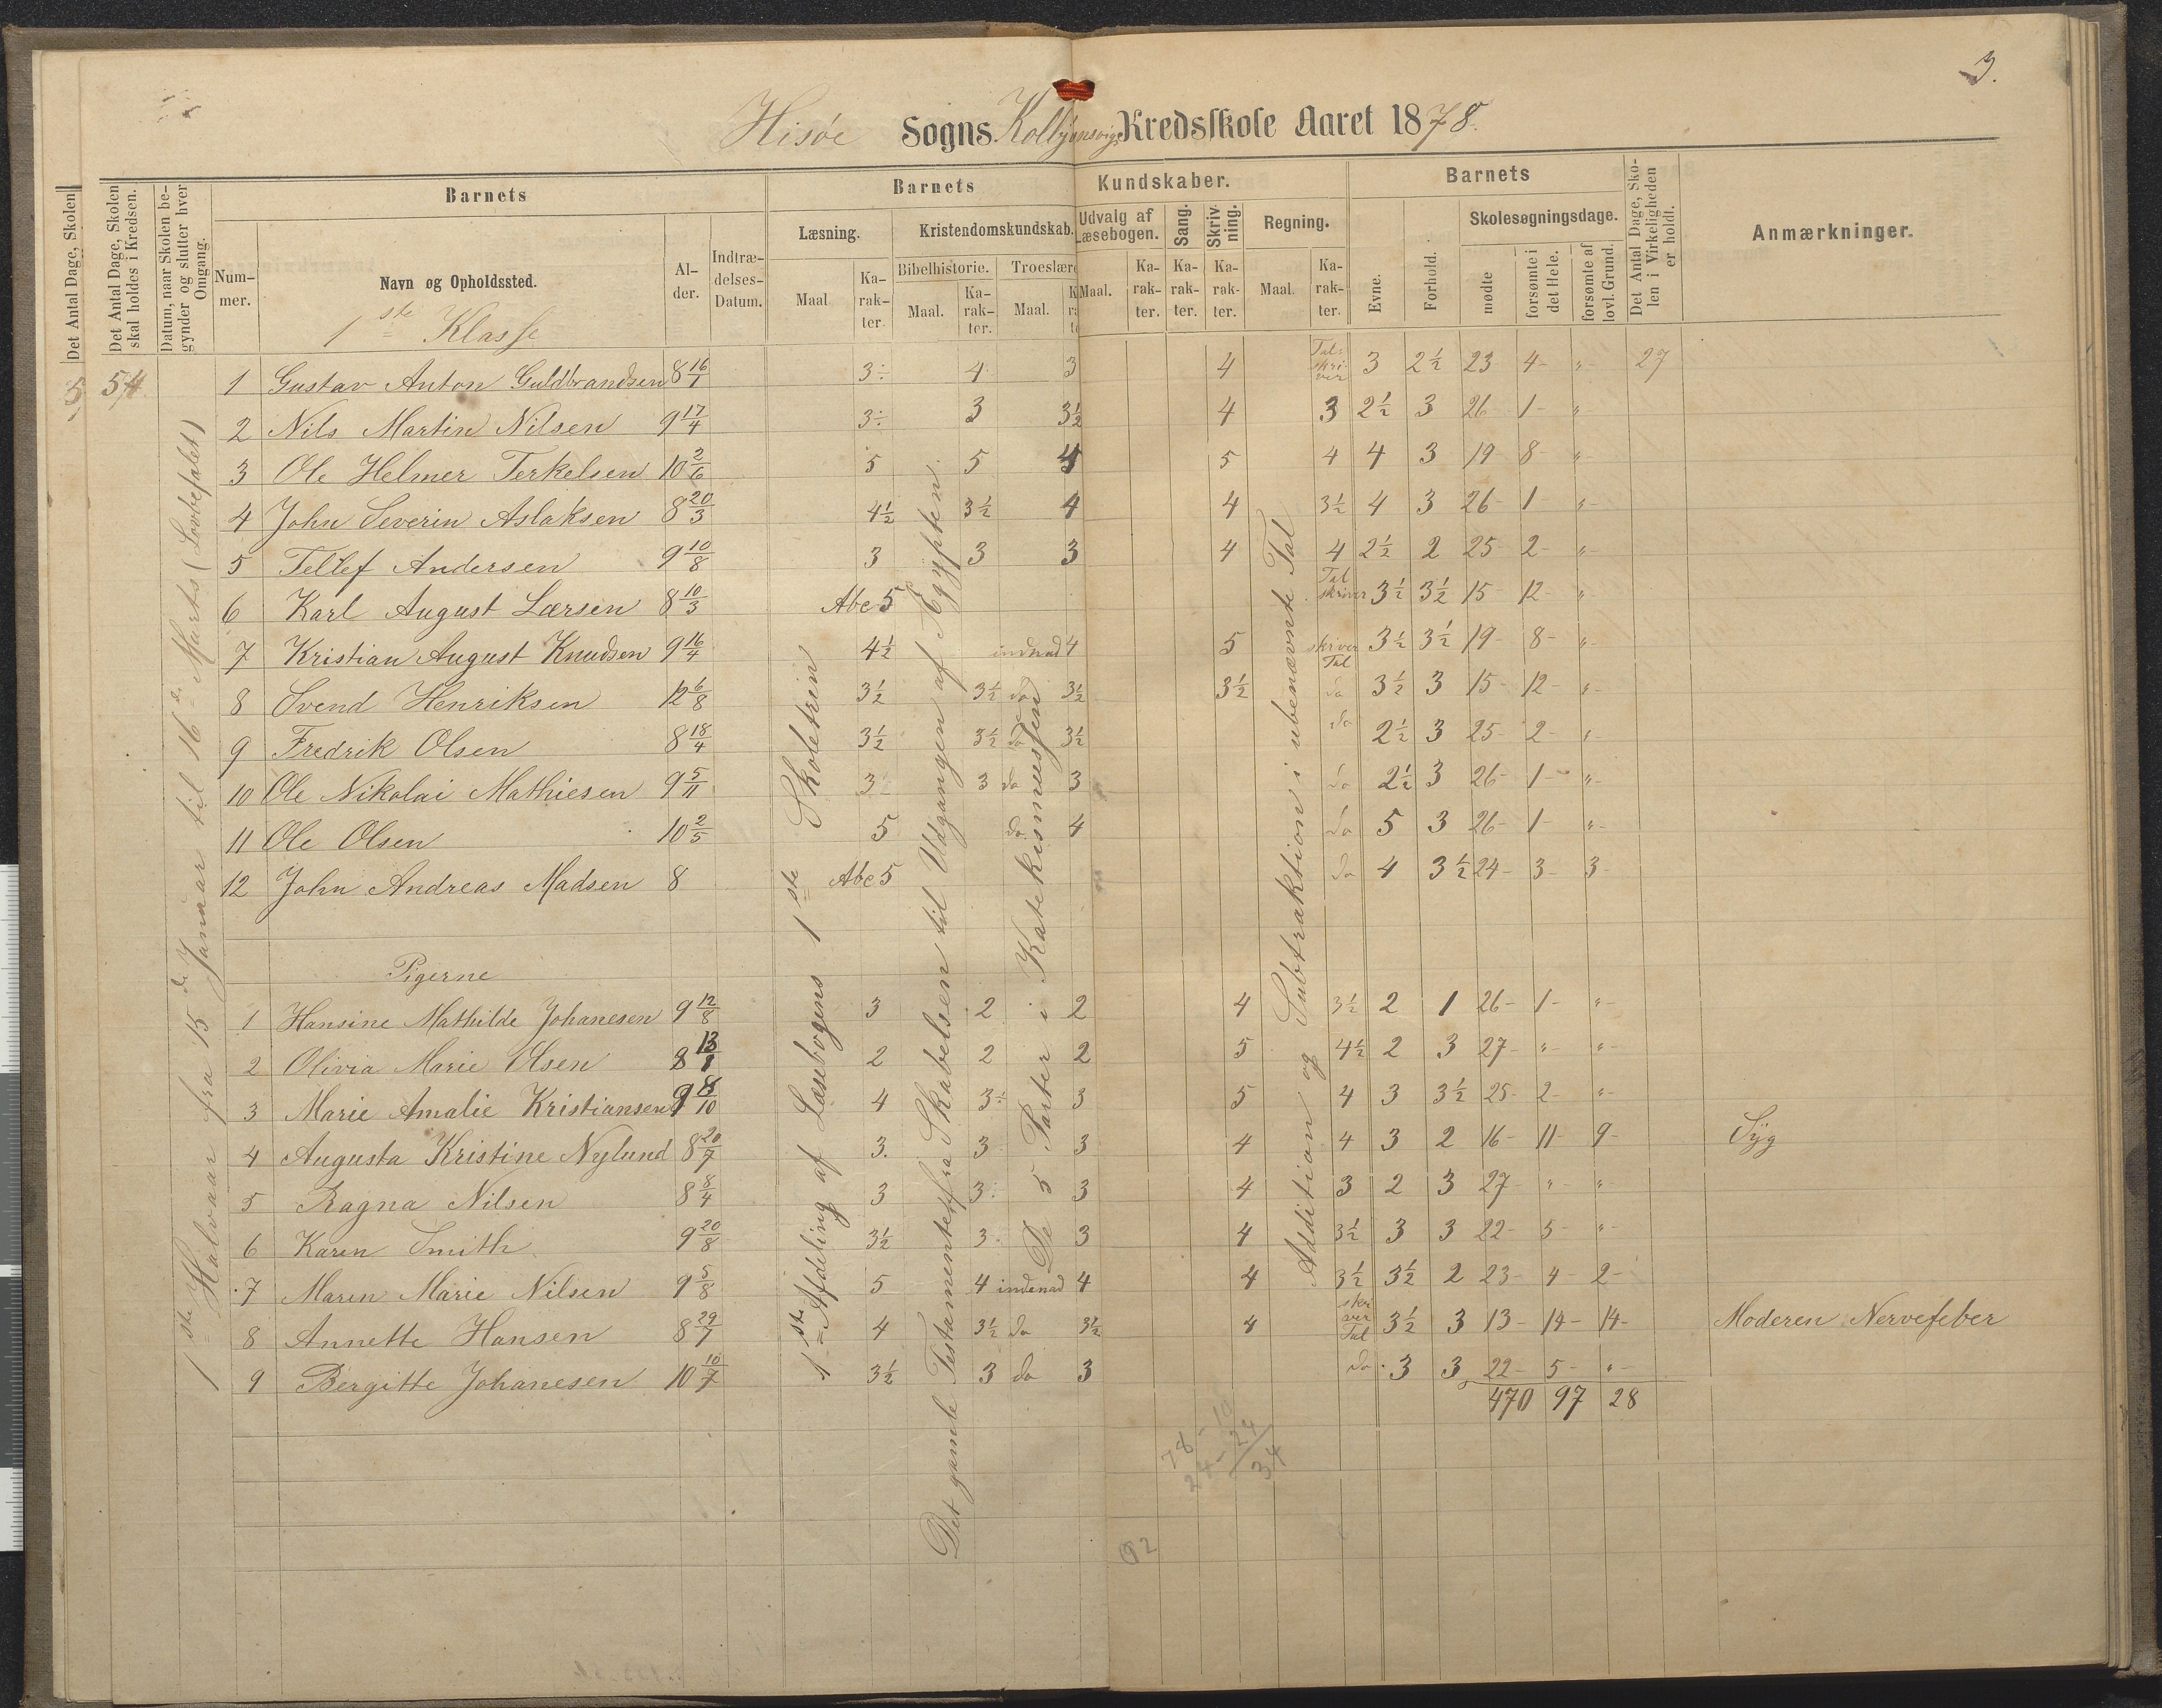 3.
Hisøe Sogns Kolbjønsvigs Kredsskole Aaret 1878.
Det Antal Dage, Skolen
Det Antal Dage, Skolen skal holdes i Kredsen.
Datum, naar Skolen begynder og slutter hver Omgang.
Barnets
Barnets Kundskaber.
Barnets
Det Antal Dage, Skolen i Virkeligheden er holdt.
Anmærkninger.
Nummer. Navn og Opholdssted. Alder. Indtrædelses-Datum.
Læsning. Kristendomskundskab. Udvalg af Læsebogen. Sang. Skrivning. Regning.
Evne. Forhold. Skolesøgningsdage.
Bibelhistorie. Troeslære
Maal Karakter. Maal. Karakter. Maal. Maal. Karakter. Karakter. Karakter. Maal. Karakter.
mødte forsømte i det Hele. forsømte af lovl. Grund.
1ste Klasse
54
1ste Halvaar fra 15de Januar til 16de Marts (Lovbefalet)
1ste Afdeling af Læsebogens 1ste Skoletrin
Det gamle Testamente fra Skabelsen til Udgangen af Ægypten
De 5 Parter i Katekismussen
Addition og Subtraktion i ubenævnte Tal
1 Gustav Anton Guldbrandsen 8 16/1 3÷ 4 3 4 Talskriver 3 2½ 23 4 " 27
2 Nils Martin Nilsen 9 17/4 3÷ 3 3½ 4 3 2½ 3 26 1 "
3 Ole Helmer Terkelsen 10 2/6 5 5 4 5 4 4 3 19 8 "
4 John Severin Aslaksen 8 20/3 4½ 3½ 4 4 3½ 4 3 26 1 "
5 Tellef Andersen 9 10/8 3 3 3 4 4 2½ 2 25 2 "
6 Karl August Larsen 8 10/3 Abc 5 Tal skriver 3½ 3½ 15 12 "
7 Kristian August Knudsen 9 16/4 4½ indenad 4 5 skriver Tal 3½ 3½ 19 8 "
8 Svend Henriksen 12 6/8 3½ 3½ do 3½ 3½ do 3½ 3 15 12 "
9 Fredrik Olsen 8 18/4 3½ 3½ do 3½ do 2½ 3 25 2 "
10 Ole Nikolai Mathiesen 9 5/11 3÷ 3 do 3 do 2½ 3 26 1 "
11 Ole Olsen 10 2/5 5 do 4 do 5 3 26 1 "
12 John Andreas Madsen 8 Abc 5 do 4 3½ 24 3 3
Pigerne
1 Hansine Mathilde Johanesen 9 12/8 3 2 2 4 3½ 2 1 26 1 "
2 Olivia Marie Olsen 8 2 2 2 5 4½ 2 3 27 " "
3 Marie Amalie Kristiansen 9 8/10 4 3÷ 3 5 4 3 3½ 25 2 "
4 Augusta Kristine Nylund 8 20/7 3. 3 3 4 4 3 2 16 11 9 Syg
5 Ragna Nilsen 8 8/4 3 3÷ 3 4 3 2 3 27 " "
6 Karen Smith 9 20/8 3½ 3÷ 3 4 3½ 3 3 22 5 "
7 Maren Marie Nilsen 9 5/8 5 4 indenad 4 4 3½ 3½ 2 23 4 2
8 Annette Hansen 8 29/7 4 3½ do 3½ 4 skriver Tal 3½ 3 13 14 14 Moderen Nervefeber
9 Bergitte Johanesen 10 10/7 3½ 3 do 3 do 3 3 22 5 "
470 97 28
78-10
24-24
34
92